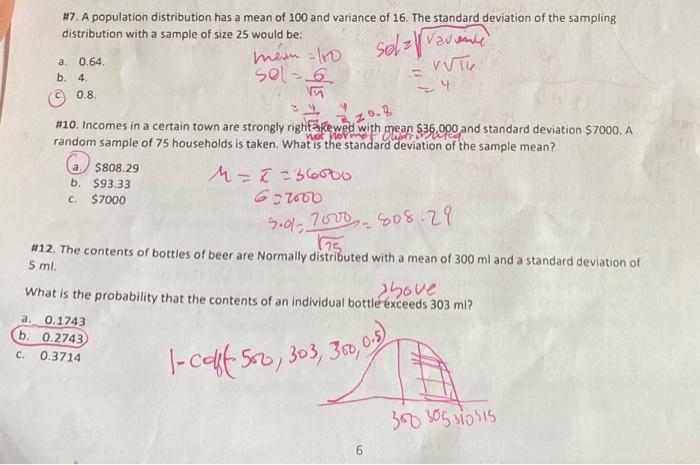 #7. A population distribution has a mean of 100 and variance of 16. The standard deviation of the sampling
distribution with a sample of size 25 would be:
a. 0.64.
b. 4.
c. 0.8.
mean = 100
= 4
= 0.8
#10. Incomes in a certain town are strongly right skewed with mean $36,000 and standard deviation $7000. A
not normal distributed
random sample of 75 households is taken. What is the standard deviation of the sample mean?
a. $808.29
b. $93.33
c. $7000
= 36000
= 7000
= 7000 = 808.29
√75
#12. The contents of bottles of beer are Normally distributed with a mean of 300 ml and a standard deviation of
5 ml.
above
What is the probability that the contents of an individual bottle exceeds 303 ml?
a. 0.1743
b. 0.2743
c. 0.3714
300 305 310 315
6